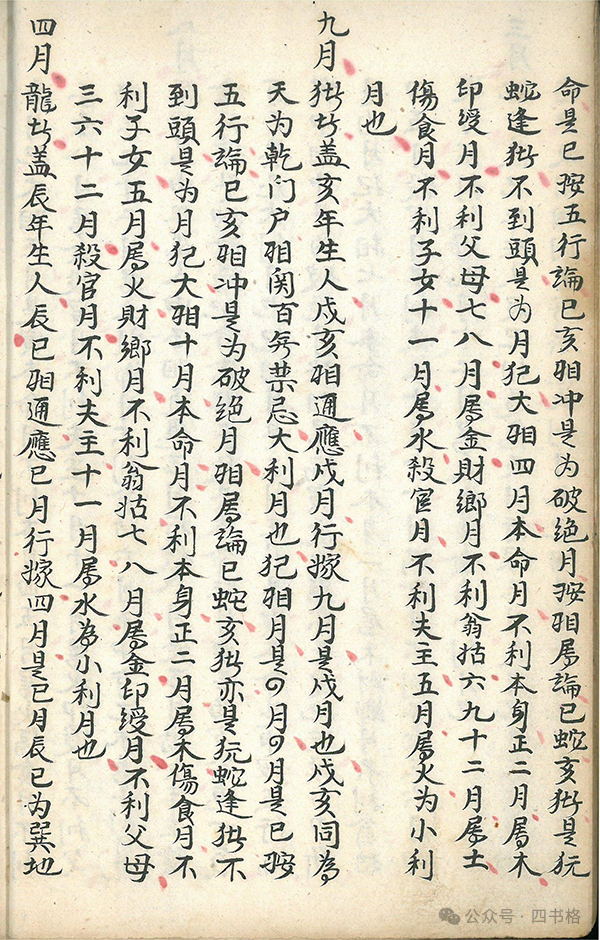 命是巳按五行論巳亥相冲是为破绝月按相属論巳蛇亥猪是犯
蛇逢猪不到頭是为月犯大相四月本命月不利本身正二月属木
印绶月不利父母七八月属金財鄉月不利翁姑六九十二月属土
傷食月不利子女十一月属水殺官月不利夫主五月属火为小利
月也
九月 猪盖亥年生人戌亥相通應戌月行嫁九月是戌月也戌亥同為
天为乾门户相関百年禁忌大利月也犯相月是四月四月是巳按
五行論巳亥相冲是为破绝月相属論巳蛇亥猪亦是犯蛇逢猪不
到頭是为月犯大相十月本命月不利本身正二月属木傷食月不
利子女五月属火財鄉月不利翁姑七八月属金印绶月不利父母
三六十二月殺官月不利夫主十一月属水為小利月也
四月 龍盖辰年生人辰巳相通應巳月行嫁四月是巳月辰巳为巽地
公众号·四书格